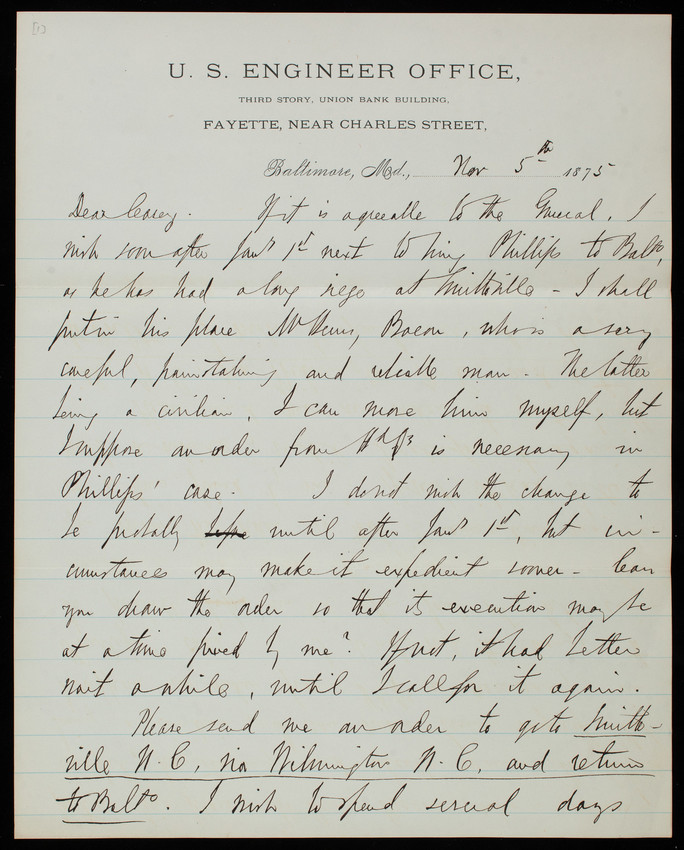 [1]
U. S. ENGINEER OFFICE,
THIRD STORY, UNION BANK BUILDING,
FAYETTE, NEAR CHARLES STREET,
Baltimore, Md., Nov 5th 1875
Dear Casey. If it is agreeable to the General, I
wish soon after Jany 1st next to bring Phillips to Balto,
as he has had a long siege at Smithville - I shall
put in his place Mr Henry Bacon, who is a very
careful, painstaking and reliable man. The latter
being a civilian, I can move him myself, but
I suppose an order from Hd Qrs is necessary in
Phillips' case. I do not wish the change to
be probably until after Jany 1st, but cir-
cumstances may make it expedient sooner - Can
you draw the order so that its execution may be
at a time fixed by me? If not, it had better
wait a while, until I call for it again.
Please send me an order to go to Smith-
ville N. C. via Wilmington N. C. and return
to Balto. I wish to spend several days